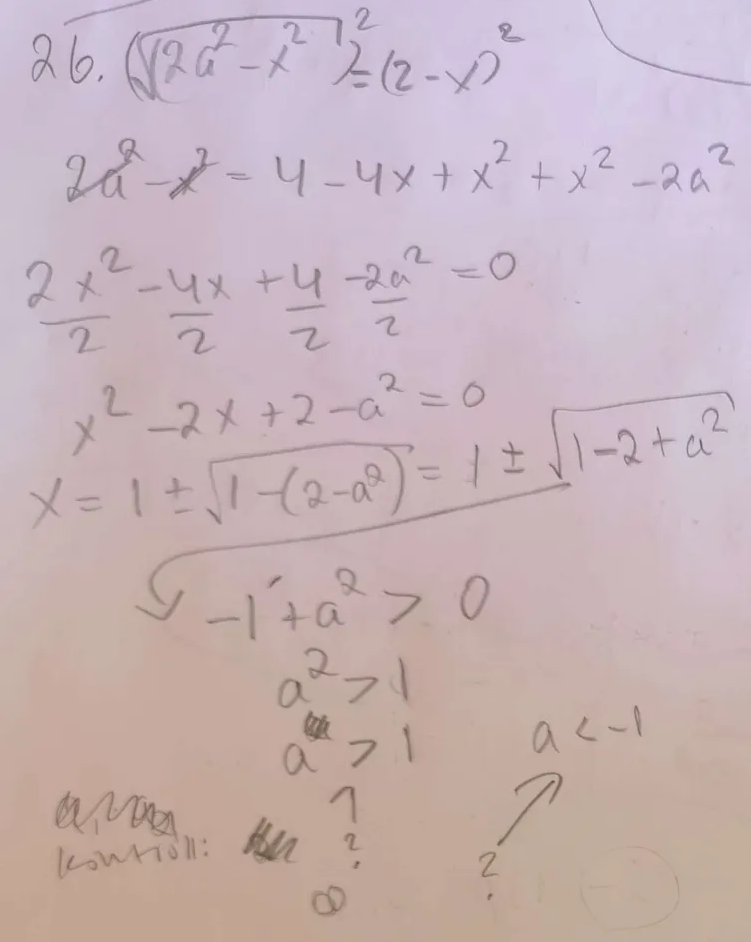 26. (√(2a² - x²))² = (2 - x)²
2a² - x² = 4 - 4x + x² + x² - 2a²
2x²/2 - 4x/2 + 4/2 - 2a²/2 = 0
x² - 2x + 2 - a² = 0
x = 1 ± √(1 - (2 - a²)) = 1 ± √(1 - 2 + a²)
-1 + a² > 0
a² > 1
a > 1 a < -1
kontroll: ? ?
∞